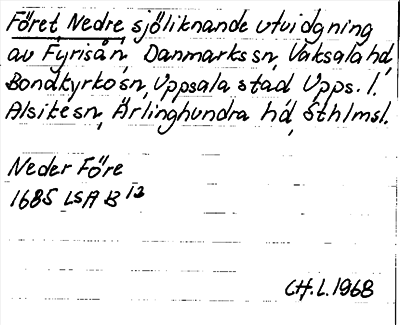 Föret, Nedre sjöliknande utvidgning
av Fyrisån, Danmarks sn, Vaksala hd,
Bondkyrko sn, Uppsala stad Upps. l.
Alsike sn, Ärlinghundra hd, Sthlmsl.
Neder Före
1685 LSA B 13
CH.L. 1968